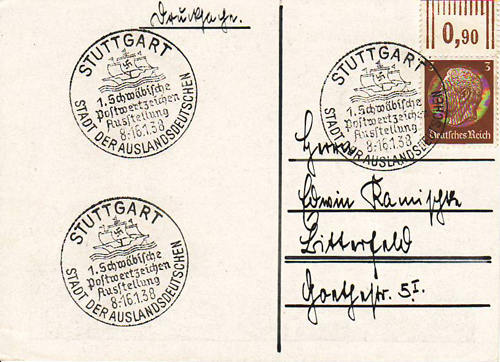 Drucksache.
STUTTGART
1. Schwäbische
Postwertzeichen
Ausstellung
8-16.1.38
STADT DER AUSLANDSDEUTSCHEN
STUTTGART
1. Schwäbische
Postwertzeichen
Ausstellung
8-16.1.38
STADT DER AUSLANDSDEUTSCHEN
0,90
3 3
Deutsches Reich
STUTTGART
1. Schwäbische
Postwertzeichen
Ausstellung
8-16.1.38
STADT DER AUSLANDSDEUTSCHEN
Herrn
Edwin Ramischke
Bitterfeld
Goethestr. 5I.